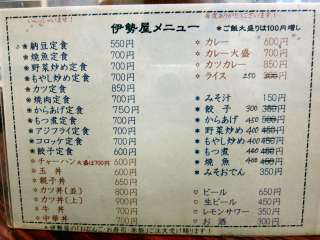 伊勢屋メニュー
毎度ありがとうございます!
*ご飯大盛りは100円増し
*納豆定食 550円
*焼魚定食 700円
*野菜炒め定食 700円
*もやし炒め定食 700円
*カツ定食 850円
*焼肉定食 700円
*からあげ定食 750円
*もつ煮定食 700円
*アジフライ定食 700円
*コロッケ定食 700円
*餃子定食 700円
*チャーハン 大盛は700円 600円
*玉丼 600円
*親子丼 650円
*カツ丼(並) 800円
*カツ丼(上) 900円
*牛丼 700円
*中華丼 700円
*カレー 600円
*カレー大盛 700円
*カツカレー 850円
*ライス 250
*みそ汁 150円
*餃子 300
*からあげ 400
*野菜炒め 450
*もやし炒め 450
*もつ煮 400
*焼魚 400
*みそおでん 350円
○ビール
○生ビール 650円
○レモンサワー 350円
○お酒 300円